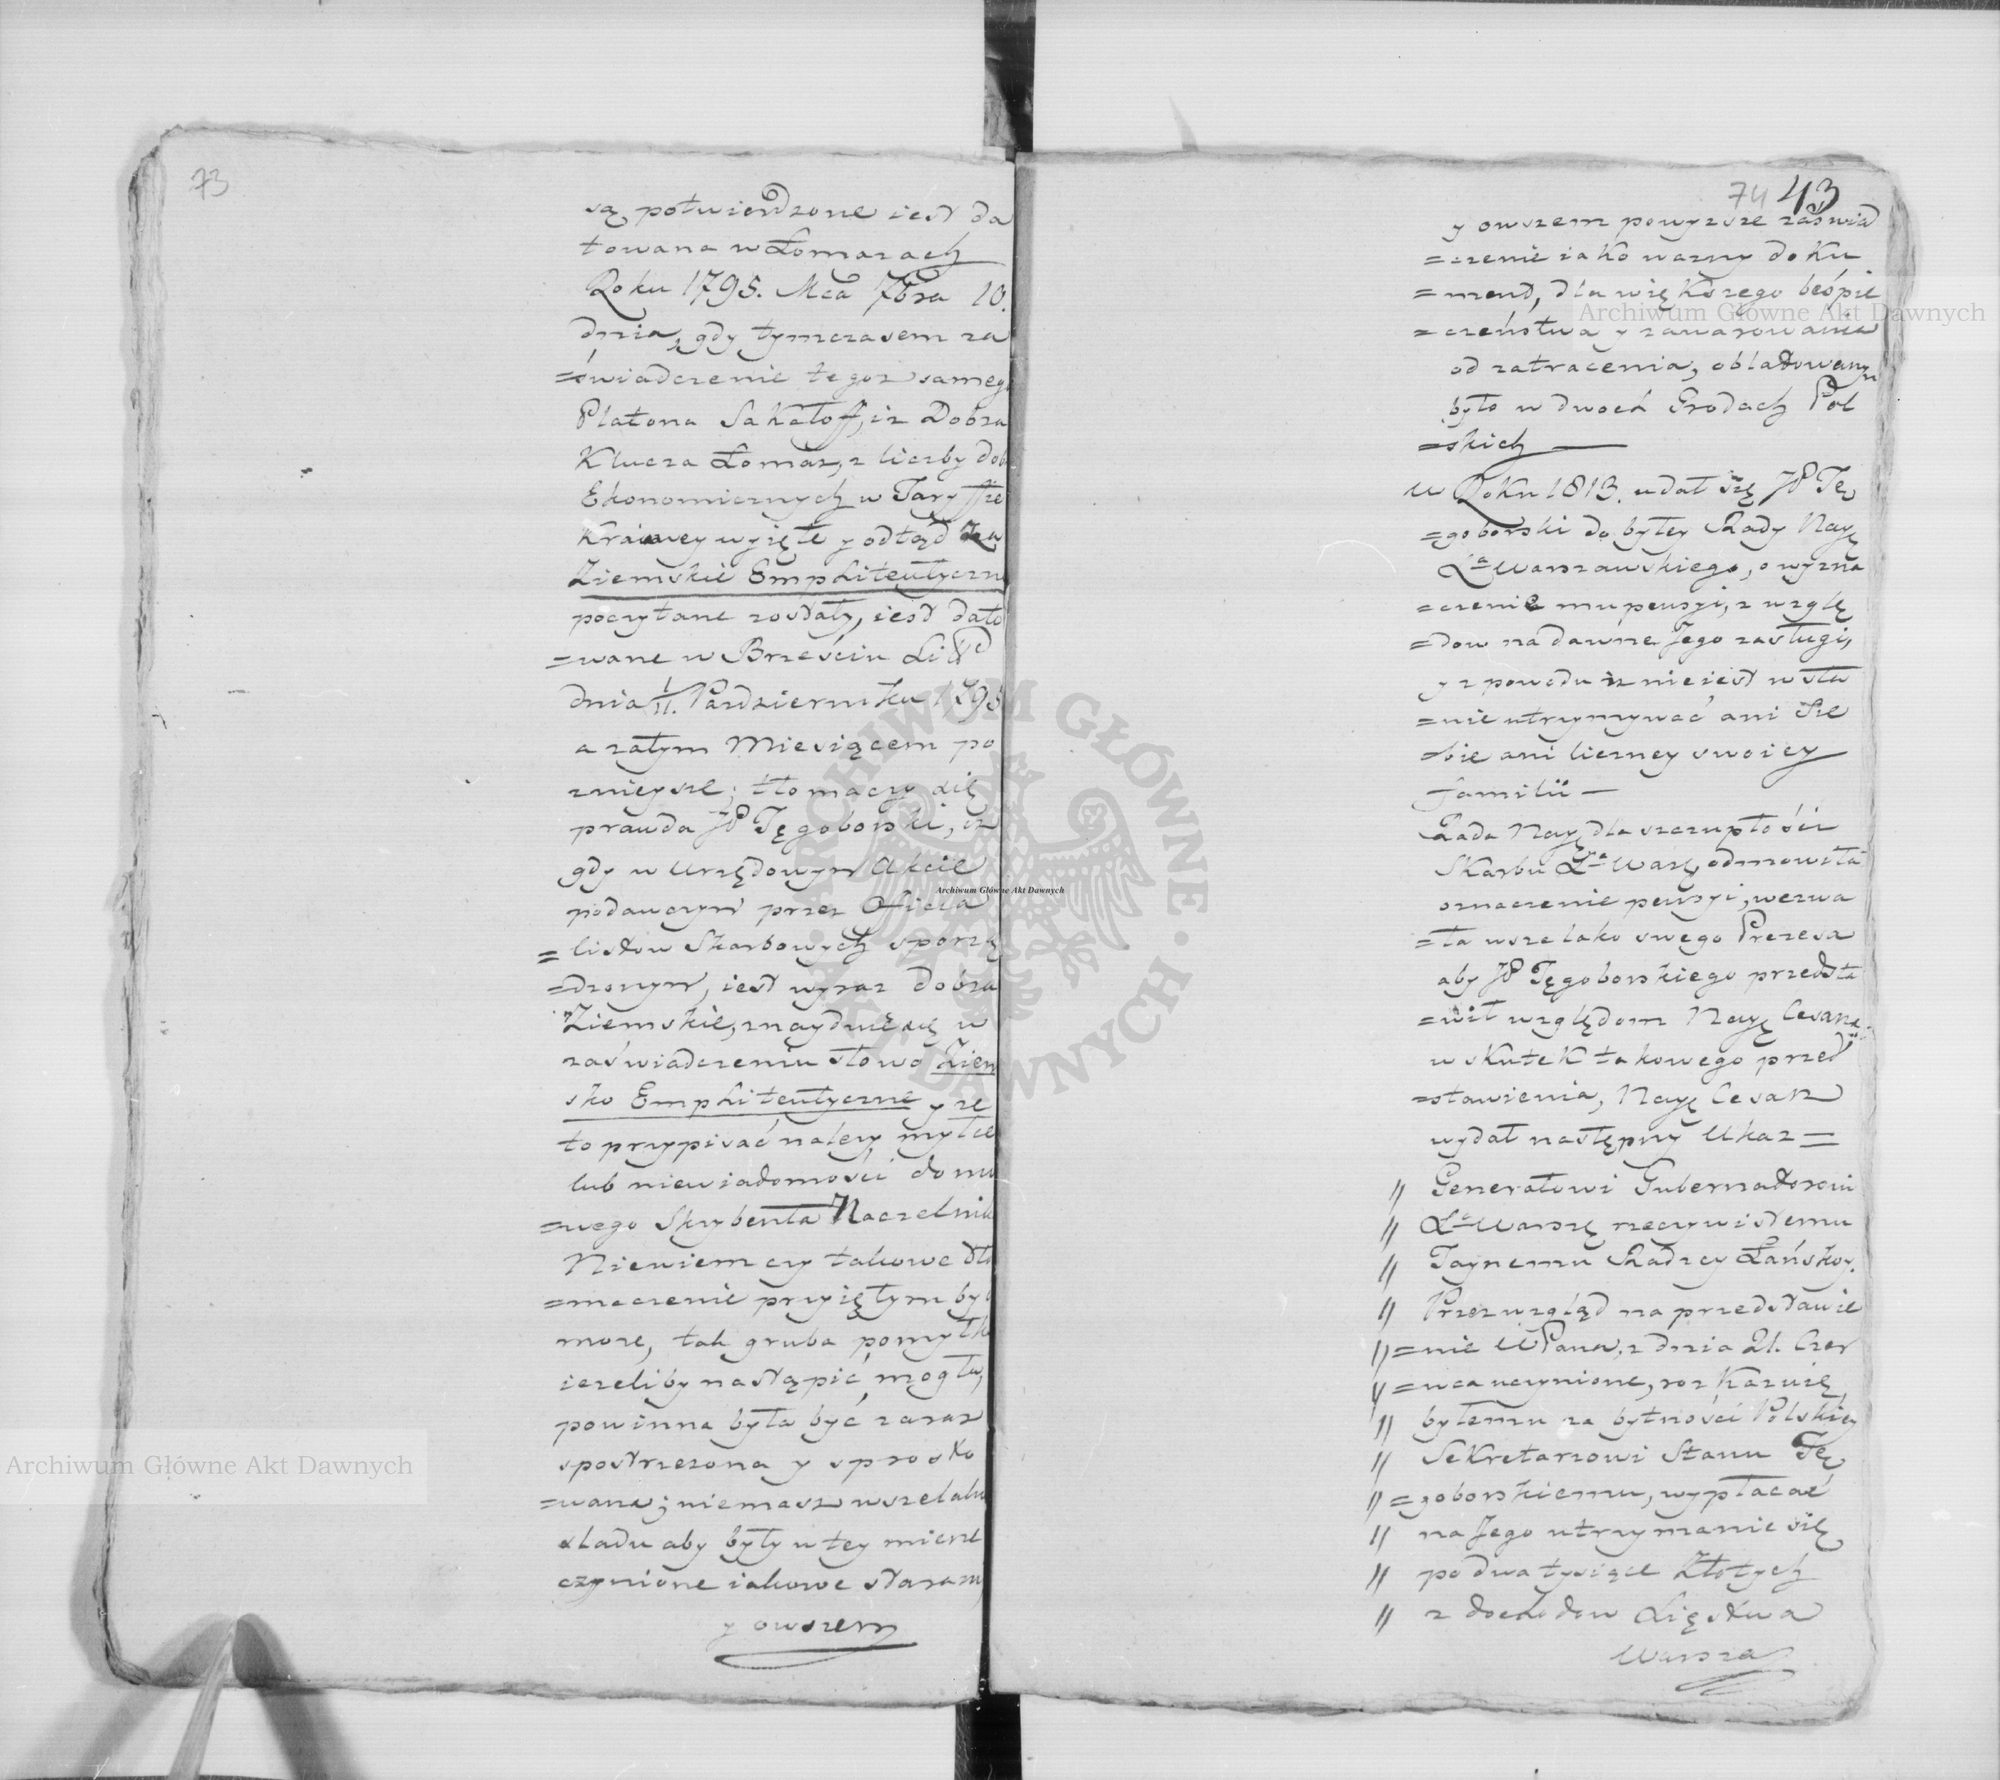 73
są potwierdzone iest da
towana w Łomazach
Roku 1795. Mca 7bra 10.
dnia, gdy tymczasem za
=świadczenie tegoż samego
Platona Sakałoff, iż Dobra
Klucza Łomaz, z liczby dob
Ekonomicznych w Taryffie
Kraiowey wyięte y odtąd za
Ziemskie Emphiteutyczne
poczytane zostały, iest dato
=wane w Brześciu Lit
dnia 1/11. Pazdziernika 1795
a zatym Miesiącem po
znieysze; tłomaczy się
prawda JP Tęgoborski, iż
gdy w urzędowym Akcie
podawczym przez Oficia
=listow Skarbowych sporzą
=dzonym, iest wyraz Dobra
Ziemskie, znayduie się w
zaświadczeniu słowo Ziem
sko Emphiteutyczne y że
to przypisać należy myłce
lub niewiadomości domu
=wego Skrybenta Naczelnik
Niewiem czy takowe tło
=maczenie przyiętym by
może, tak gruba pomyłk
ieżeliby nastąpić mogła,
powinna była być zaraz
spostrzeżona y sprosto
=wana; niemasz wszelako
śladu aby były w tey mierze
czynione iakowe staran
y owszem
74 43
y owszem powyższe zaświad
=czenie iako ważny doku
=ment, dla większego beśpie
=czeństwa y zawarowania
od zatracenia, oblatowanym
było w dwoch Grodach Pol
=skich
w Roku 1813. udał się JP Tę
=goborski do byłey Rady Nayę
Xa Warszawskiego, o wyzna
=czenie mu pensyi, z wzglę
=dow na dawne Jego zasługi,
y z powodu iż nie iest w sta
=nie utrzymywać ani Sie
=bie ani liczney swoiey
familii —
Rada Nayę dla szczupłości
Skarbu Xa Warę odmowiła
oznaczenie pensyi, wezwa
=ła wszelako swego Prezesa
aby JP Tęgoborskiego przedsta
=wił względom Nayę Cesarza
w skutek takowego przed
=stawienia, Nayę Cesarz
wydał następny Ukaz =
" Generałowi Gubernatorowi
" Xa Warszę rzeczywistemu
" Taynemu Radzcy Łańskoy.
" Przez wzgląd na przedstawie
" =nie WPana, z dnia 21. Czer
" =wca uczynione, rozkazuię
" byłemu za bytności Polskiey
" Sekretarzowi Stanu Tę
" =goborskiemu, wypłacać
" na Jego utrzymanie się
" po dwa tysiące Złotych
" z dochodow Xięstwa
Warsza
Archiwum Główne Akt Dawnych
Archiwum Główne Akt Dawnych
Archiwum Główne Akt Dawnych
ARCHIWUM GŁÓWNE AKT DAWNYCH